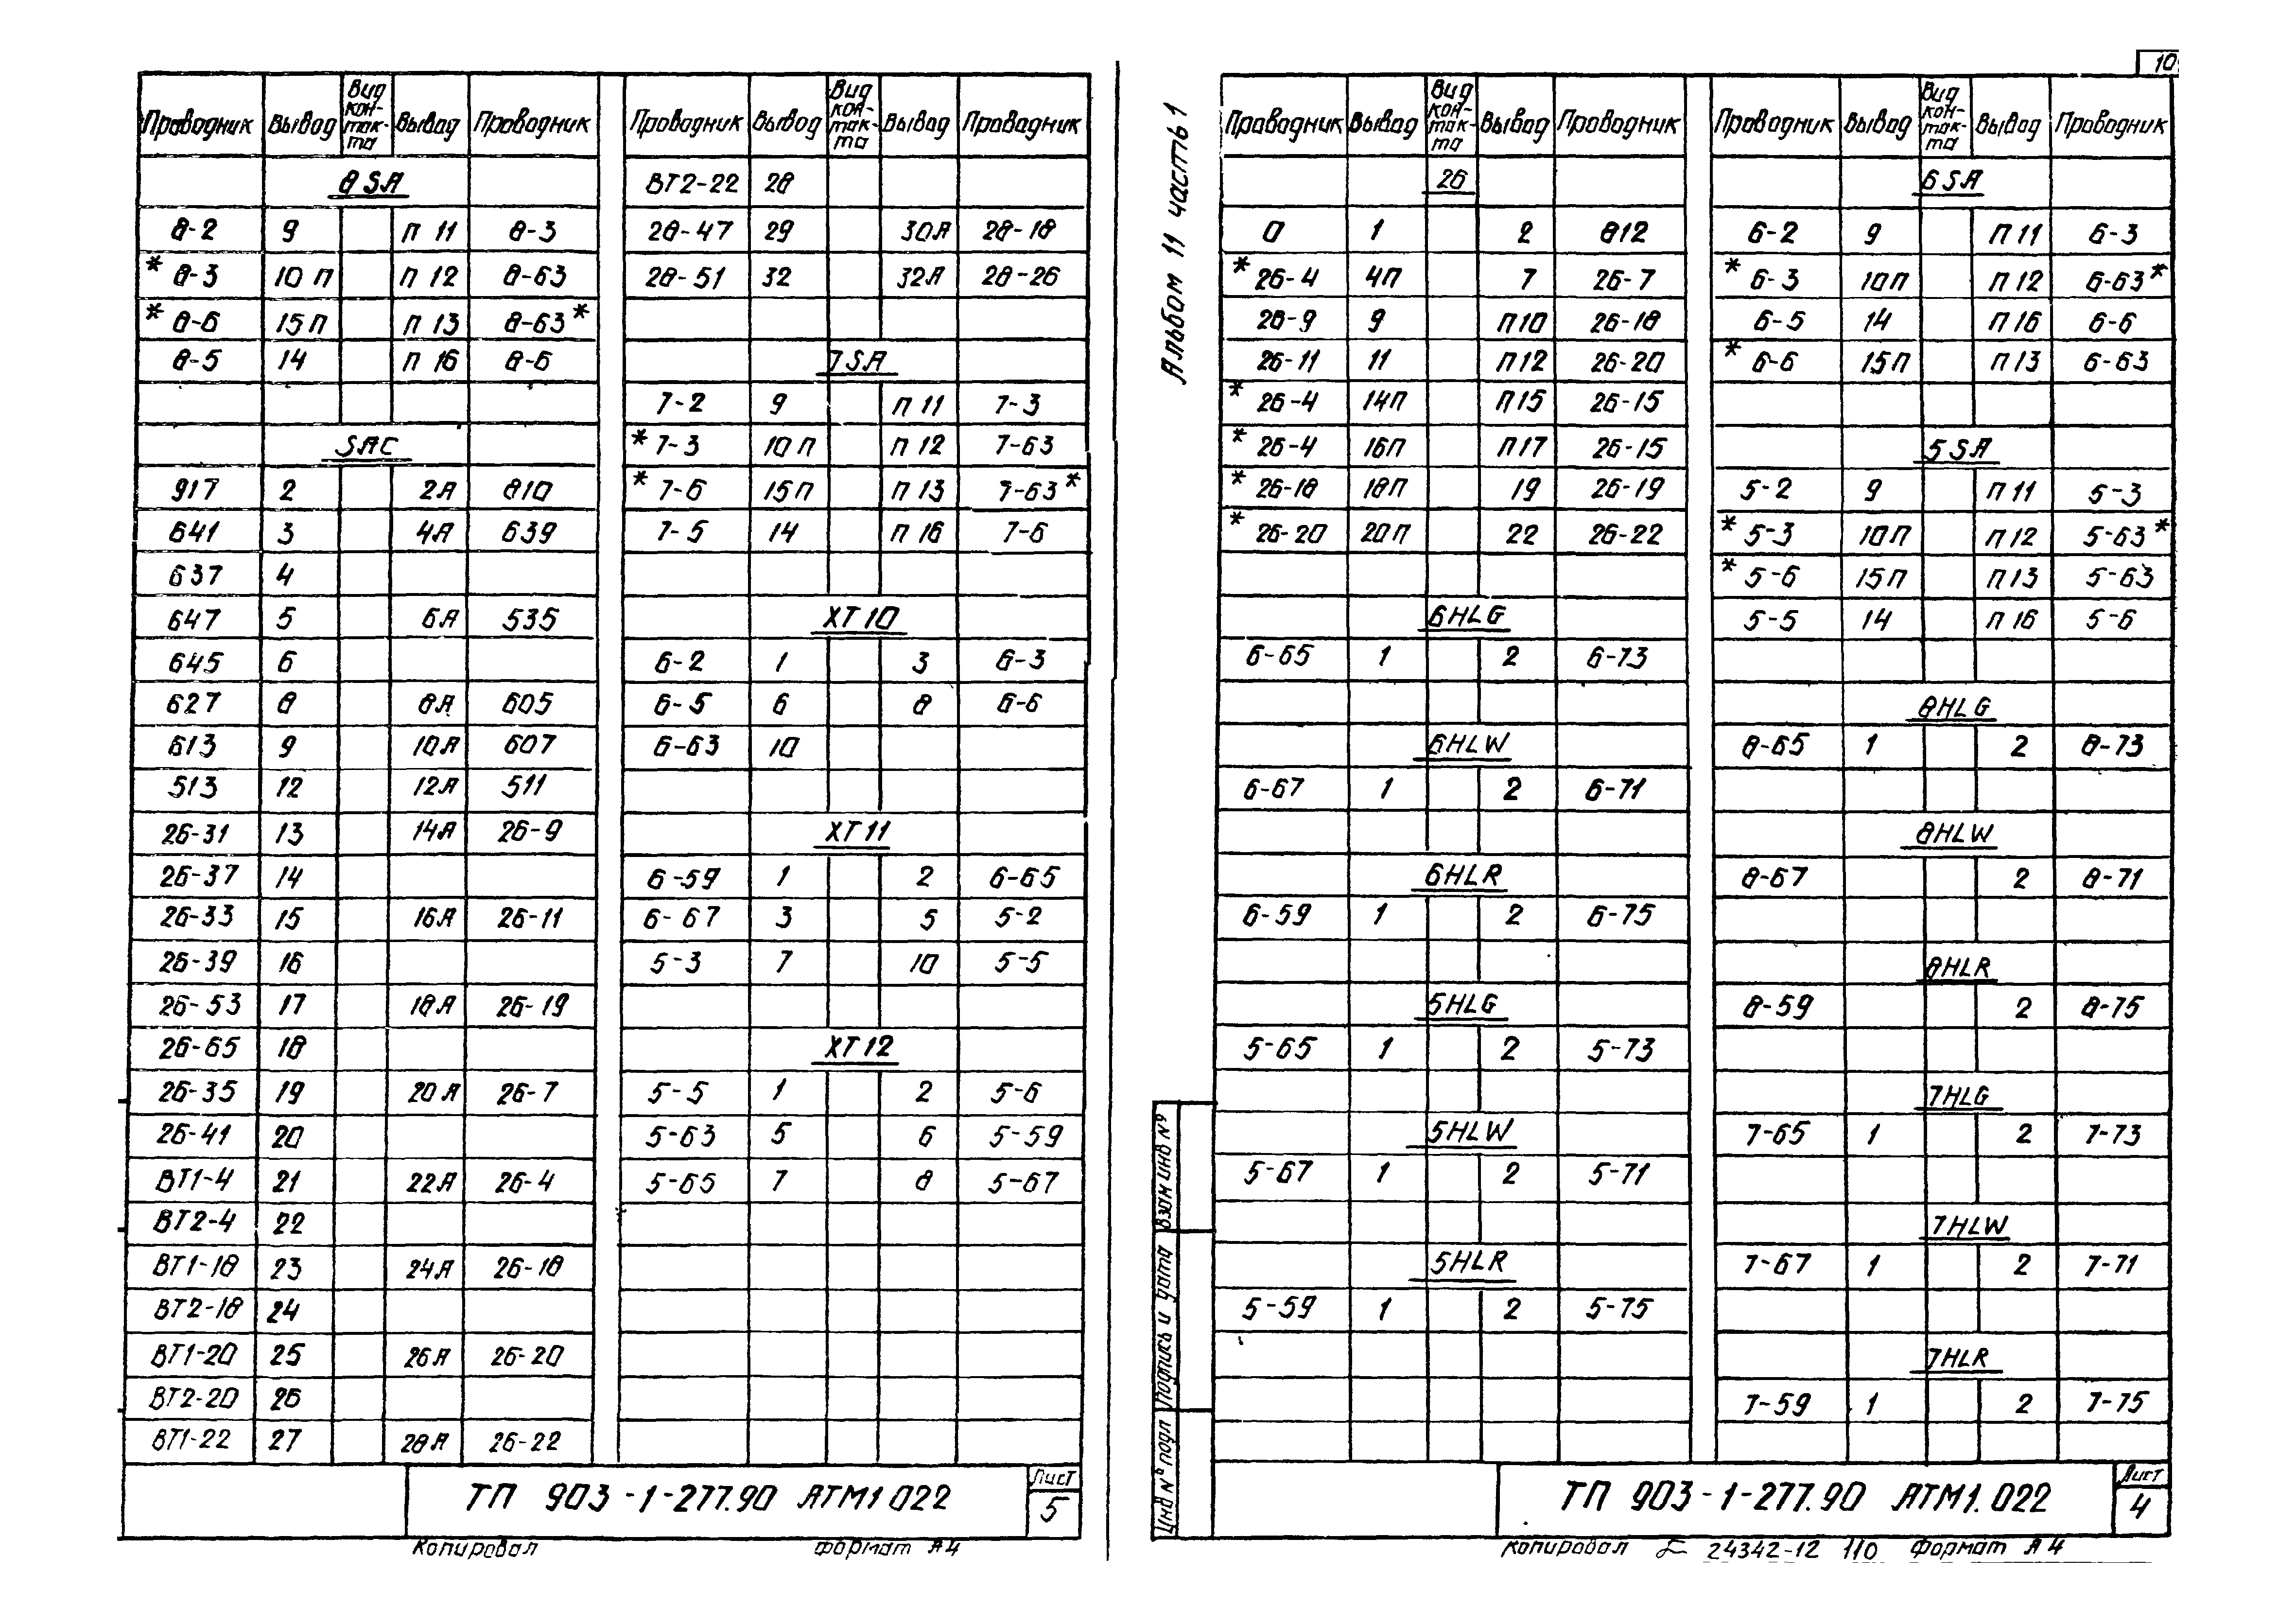 10
Альбом 11 часть 1
Проводник Вывод Вид кон-так-та Вывод Проводник
8SA
8-2 9 П 11 8-3
* 8-3 10 П П 12 8-63
* 8-6 15 П П 13 8-63 *
8-5 14 П 16 8-6
SAC
917 2 2А 810
641 3 4А 639
637 4
647 5 6А 535
645 6
627 8 8А 605
613 9 10А 607
513 12 12А 511
26-31 13 14А 26-9
26-37 14
26-33 15 16А 26-11
26-39 16
26-53 17 18А 26-19
26-65 18
26-35 19 20А 26-7
26-41 20
ВТ1-4 21 22А 26-4
ВТ2-4 22
ВТ1-18 23 24А 26-18
ВТ2-18 24
ВТ1-20 25 26А 26-20
ВТ2-20 26
ВТ1-22 27 28А 26-22
Проводник Вывод Вид кон-так-та Вывод Проводник
ВТ2-22 28
28-47 29 30А 28-18
28-51 32 32А 28-26
7SA
7-2 9 П 11 7-3
* 7-3 10 П П 12 7-63
* 7-6 15 П П 13 7-63 *
7-5 14 П 16 7-6
XT10
6-2 1 3 6-3
6-5 6 8 6-6
6-63 10
XT11
6-59 1 2 6-65
6-67 3 5 5-2
5-3 7 10 5-5
XT12
5-5 1 2 5-6
5-63 5 6 5-59
5-65 7 8 5-67
ТП 903-1-277.90 АТМ1 022
Лист
5
Копировал Формат А4
Проводник Вывод Вид кон-так-та Вывод Проводник
26
0 1 2 812
* 26-4 4П 7 26-7
26-9 9 П10 26-18
26-11 11 П12 26-20
* 26-4 14П П15 26-15
* 26-4 16П П17 26-15
* 26-18 18П 19 26-19
* 26-20 20П 22 26-22
6HLG
6-65 1 2 6-73
6HLW
6-67 1 2 6-71
6HLR
6-59 1 2 6-75
5HLG
5-65 1 2 5-73
5HLW
5-67 1 2 5-71
5HLR
5-59 1 2 5-75
Проводник Вывод Вид кон-так-та Вывод Проводник
6SA
6-2 9 П 11 6-3
* 6-3 10П П 12 6-63 *
6-5 14 П16 6-6
* 6-6 15П П13 6-63
5SA
5-2 9 П 11 5-3
* 5-3 10П П12 5-63 *
* 5-6 15П П13 5-63
5-5 14 П 16 5-6
8HLG
8-65 1 2 8-73
8HLW
8-67 2 8-71
8HLR
8-59 2 8-75
7HLG
7-65 1 2 7-73
7HLW
7-67 1 2 7-71
7HLR
7-59 1 2 7-75
Инв № подл Подпись и дата Взам инв №
ТП 903-1-277.90 АТМ1.022
Лист
4
Копировал 24342-12 110 Формат А4